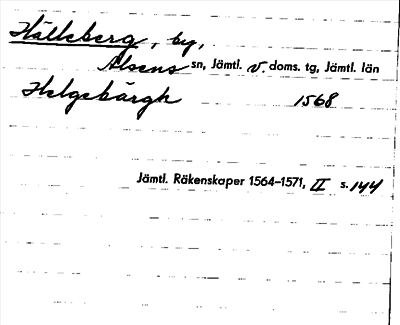 Hälleberg, by,
Alsens sn, Jämtl. v. doms. tg, Jämtl. län
Helgebärgh 1568
Jämtl. Räkenskaper 1564-1571, II s. 144